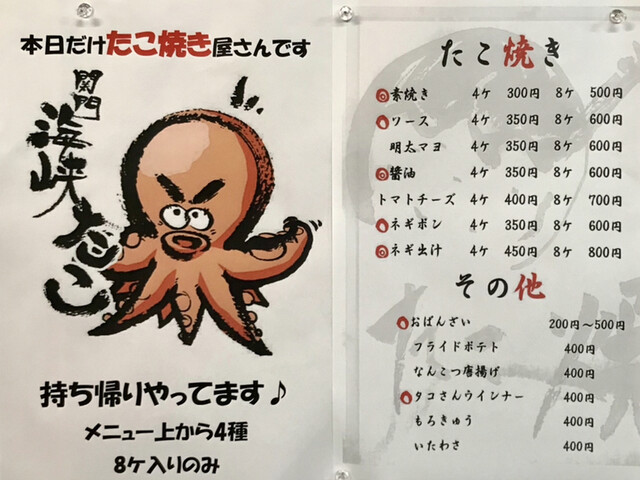 本日だけたこ焼き屋さんです
関門
海峡
たこ
持ち帰りやってます♪
メニュー上から4種
8ケ入りのみ
たこ焼き
素焼き 4ケ 300円 8ケ 500円
ソース 4ケ 350円 8ケ 600円
明太マヨ 4ケ 350円 8ケ 600円
醤油 4ケ 350円 8ケ 600円
トマトチーズ 4ケ 400円 8ケ 700円
ネギポン 4ケ 350円 8ケ 600円
ネギ出汁 4ケ 450円 8ケ 800円
その他
おばんざい 200円〜500円
フライドポテト 400円
なんこつ唐揚げ 400円
タコさんウインナー 400円
もろきゅう 400円
いたわさ 400円